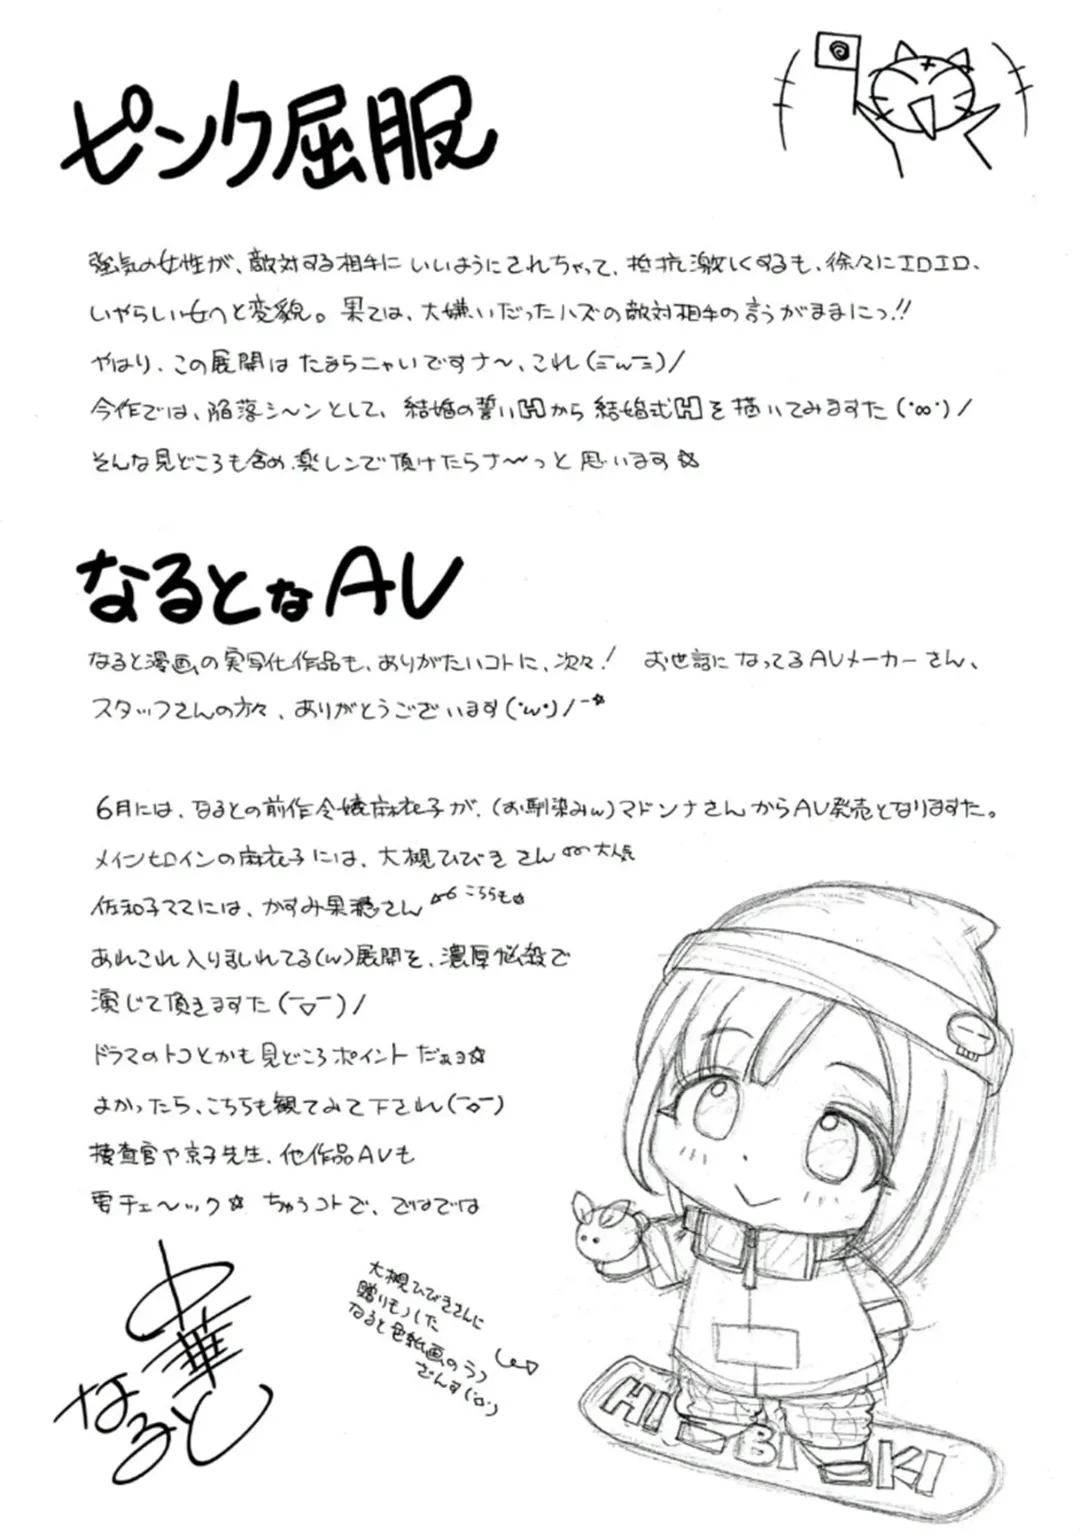 ピンク屈服
強気の女性が、敵対する相手にいいようにされちゃって、抵抗激しくするも、徐々にエロエロ、
いやらしい女へと変貌。果ては、大嫌いだったハズの敵対相手の言うがままにっ!!
やはり、この展開はたまらニャいですナ〜、これ(=ω=)/
今作では、陥落シ〜ンとして、結婚の誓いHから結婚式Hを描いてみますた(・∞・)/
そんな見どころも含め、楽しんで頂けたらナ〜っと思います☆
なるとなAV
なると漫画の実写化作品も、ありがたいコトに、次々! お世話になってるAVメーカーさん、
スタッフさんの方々、ありがとうございます(・ω・)/-☆
6月には、なるとの前作令嬢麻衣子が、(お馴染みw)マドンナさんからAV発売となりますた。
メインヒロインの麻衣子には、大槻ひびきさん 大人気
佐和子ママには、かすみ果穂さん こちらも☆
あれこれ入りまじれてる(w)展開を、濃厚悩殺で
演じて頂きますた(￣▽￣)/
ドラマのトコとかも見どころポイントだぁョ☆
よかったら、こちらも観てみて下され(￣◇￣)
捜査官や京子先生、他作品AVも
要チェ〜ック☆ ちゅうコトで、ではでは
中華
なると
大槻ひびきさんに
贈りもノした
なると色紙画のラフ
ざんす(・ロ・)
HIBIKI